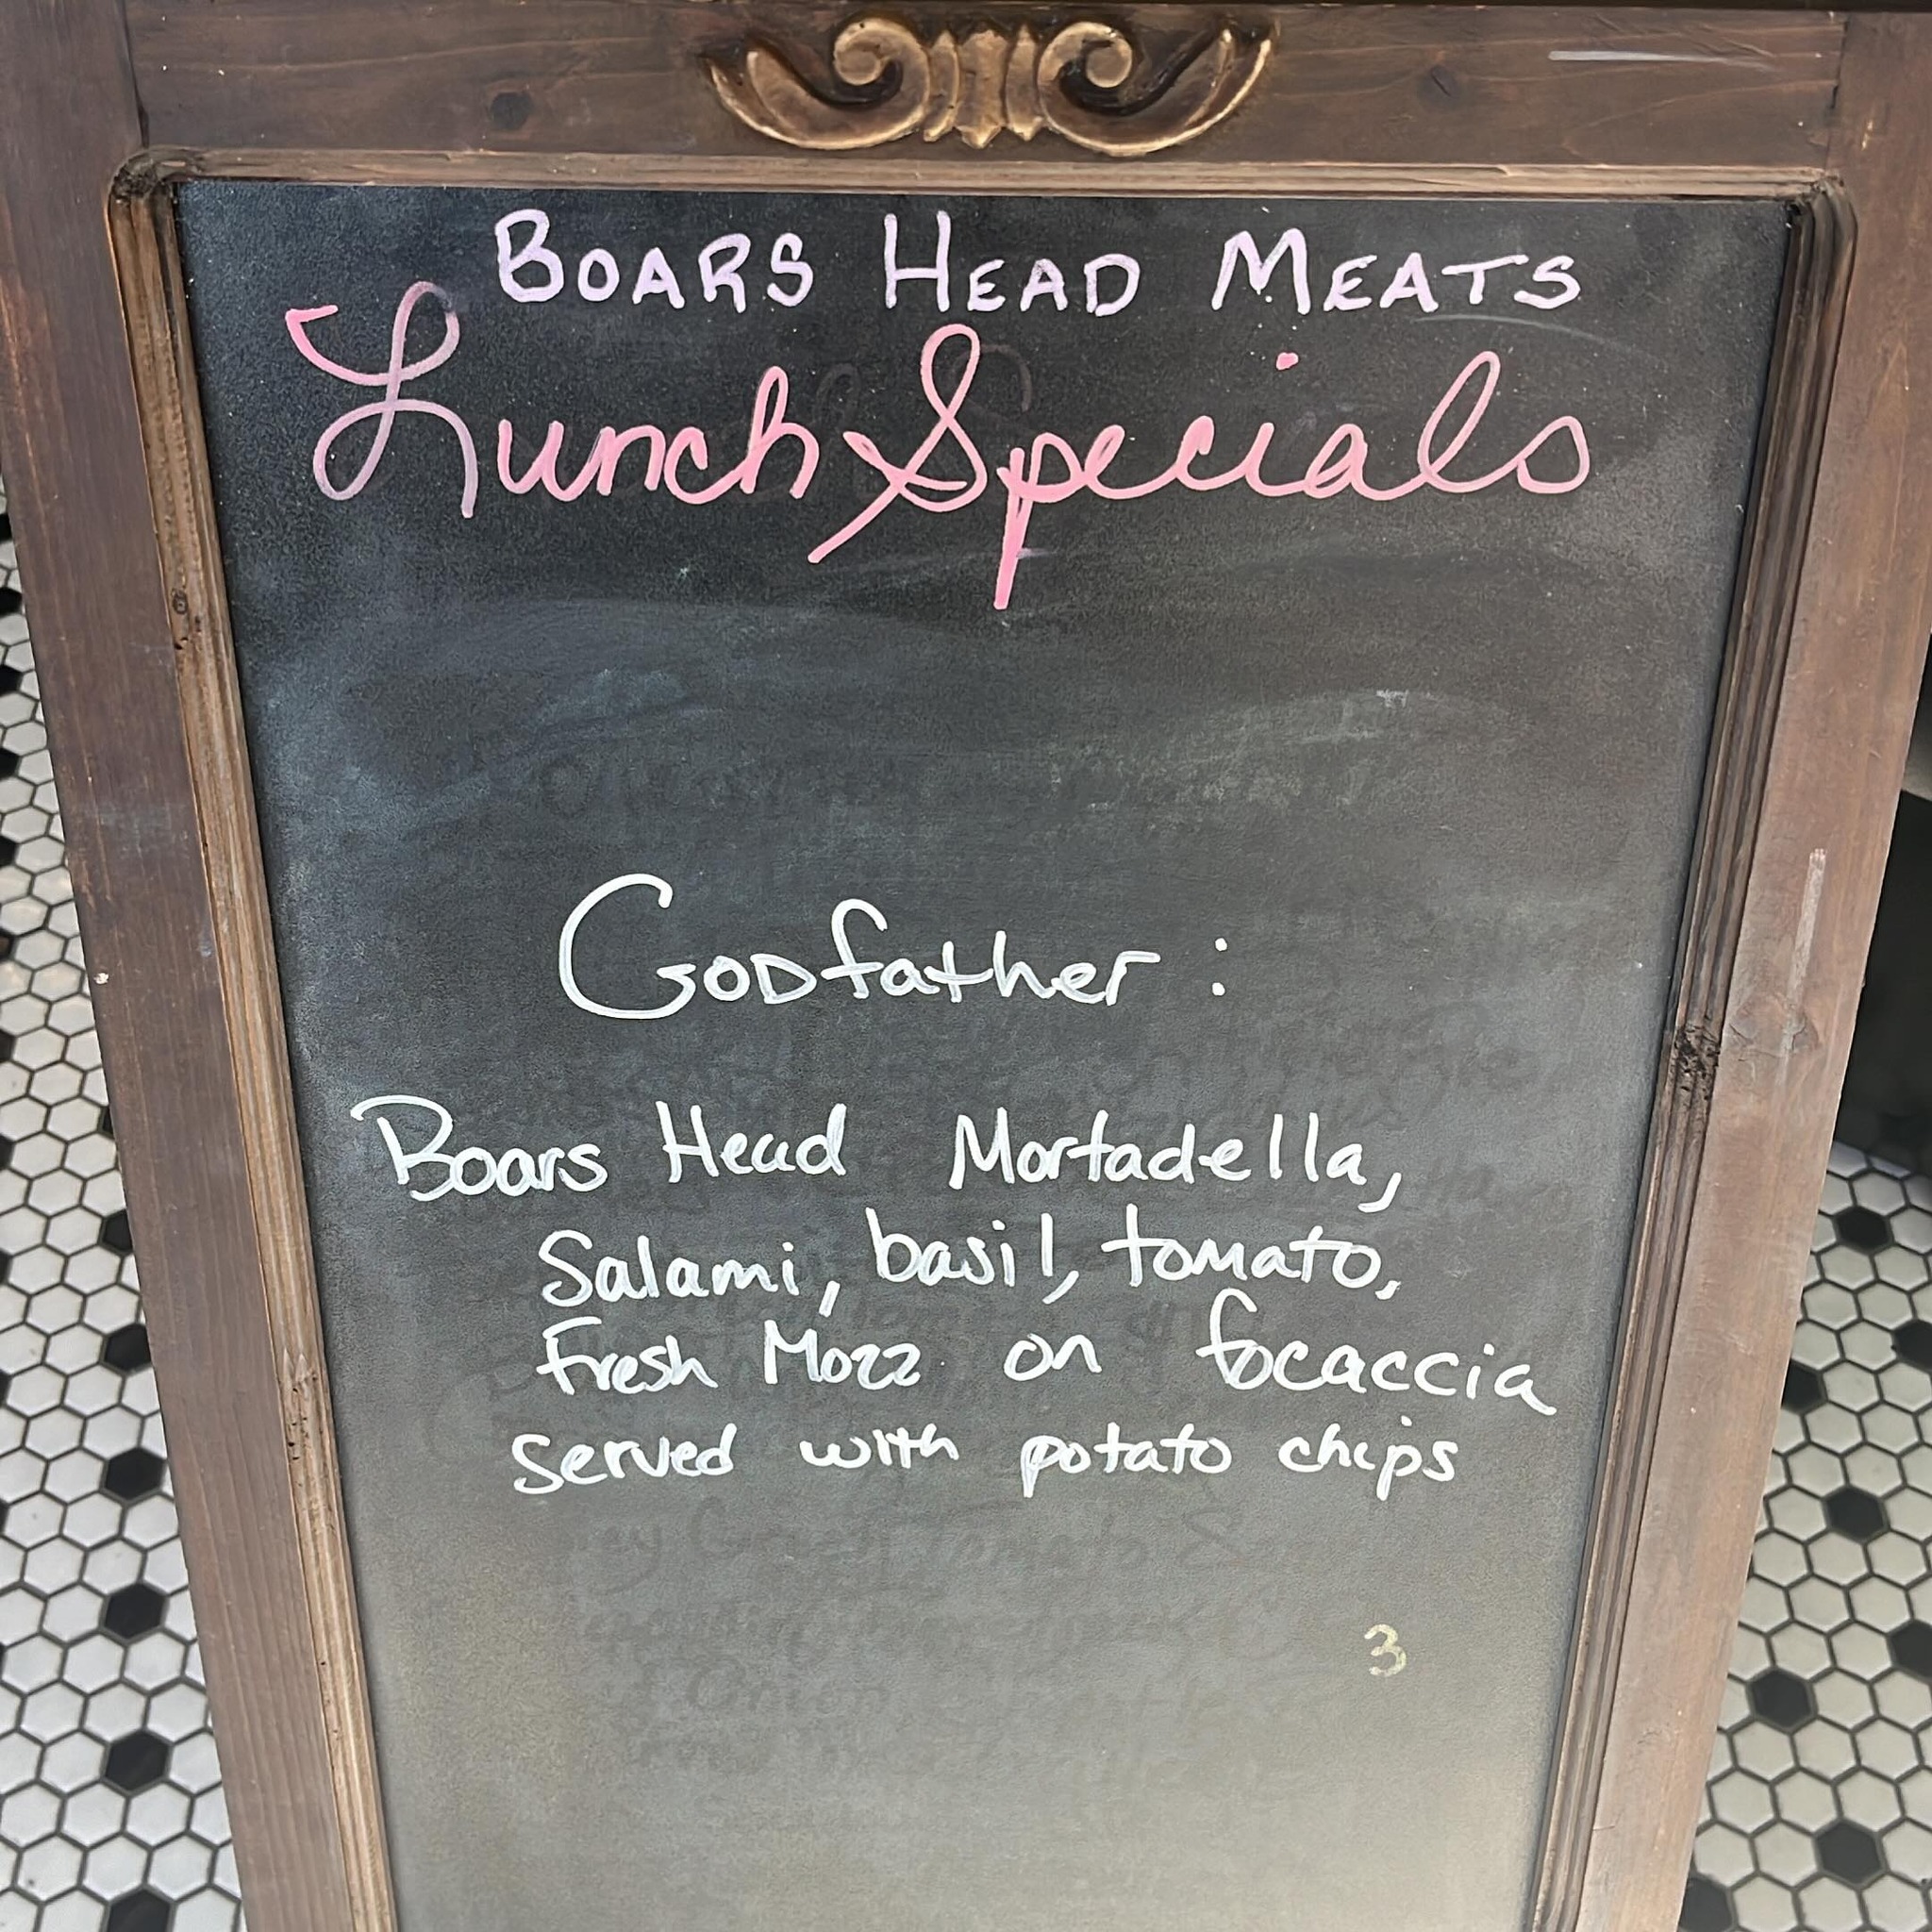 BOARS HEAD MEATS
Lunch Specials
Godfather :
Boars Head Mortadella,
Salami, basil, tomato,
Fresh Mozz on focaccia
served with potato chips
3